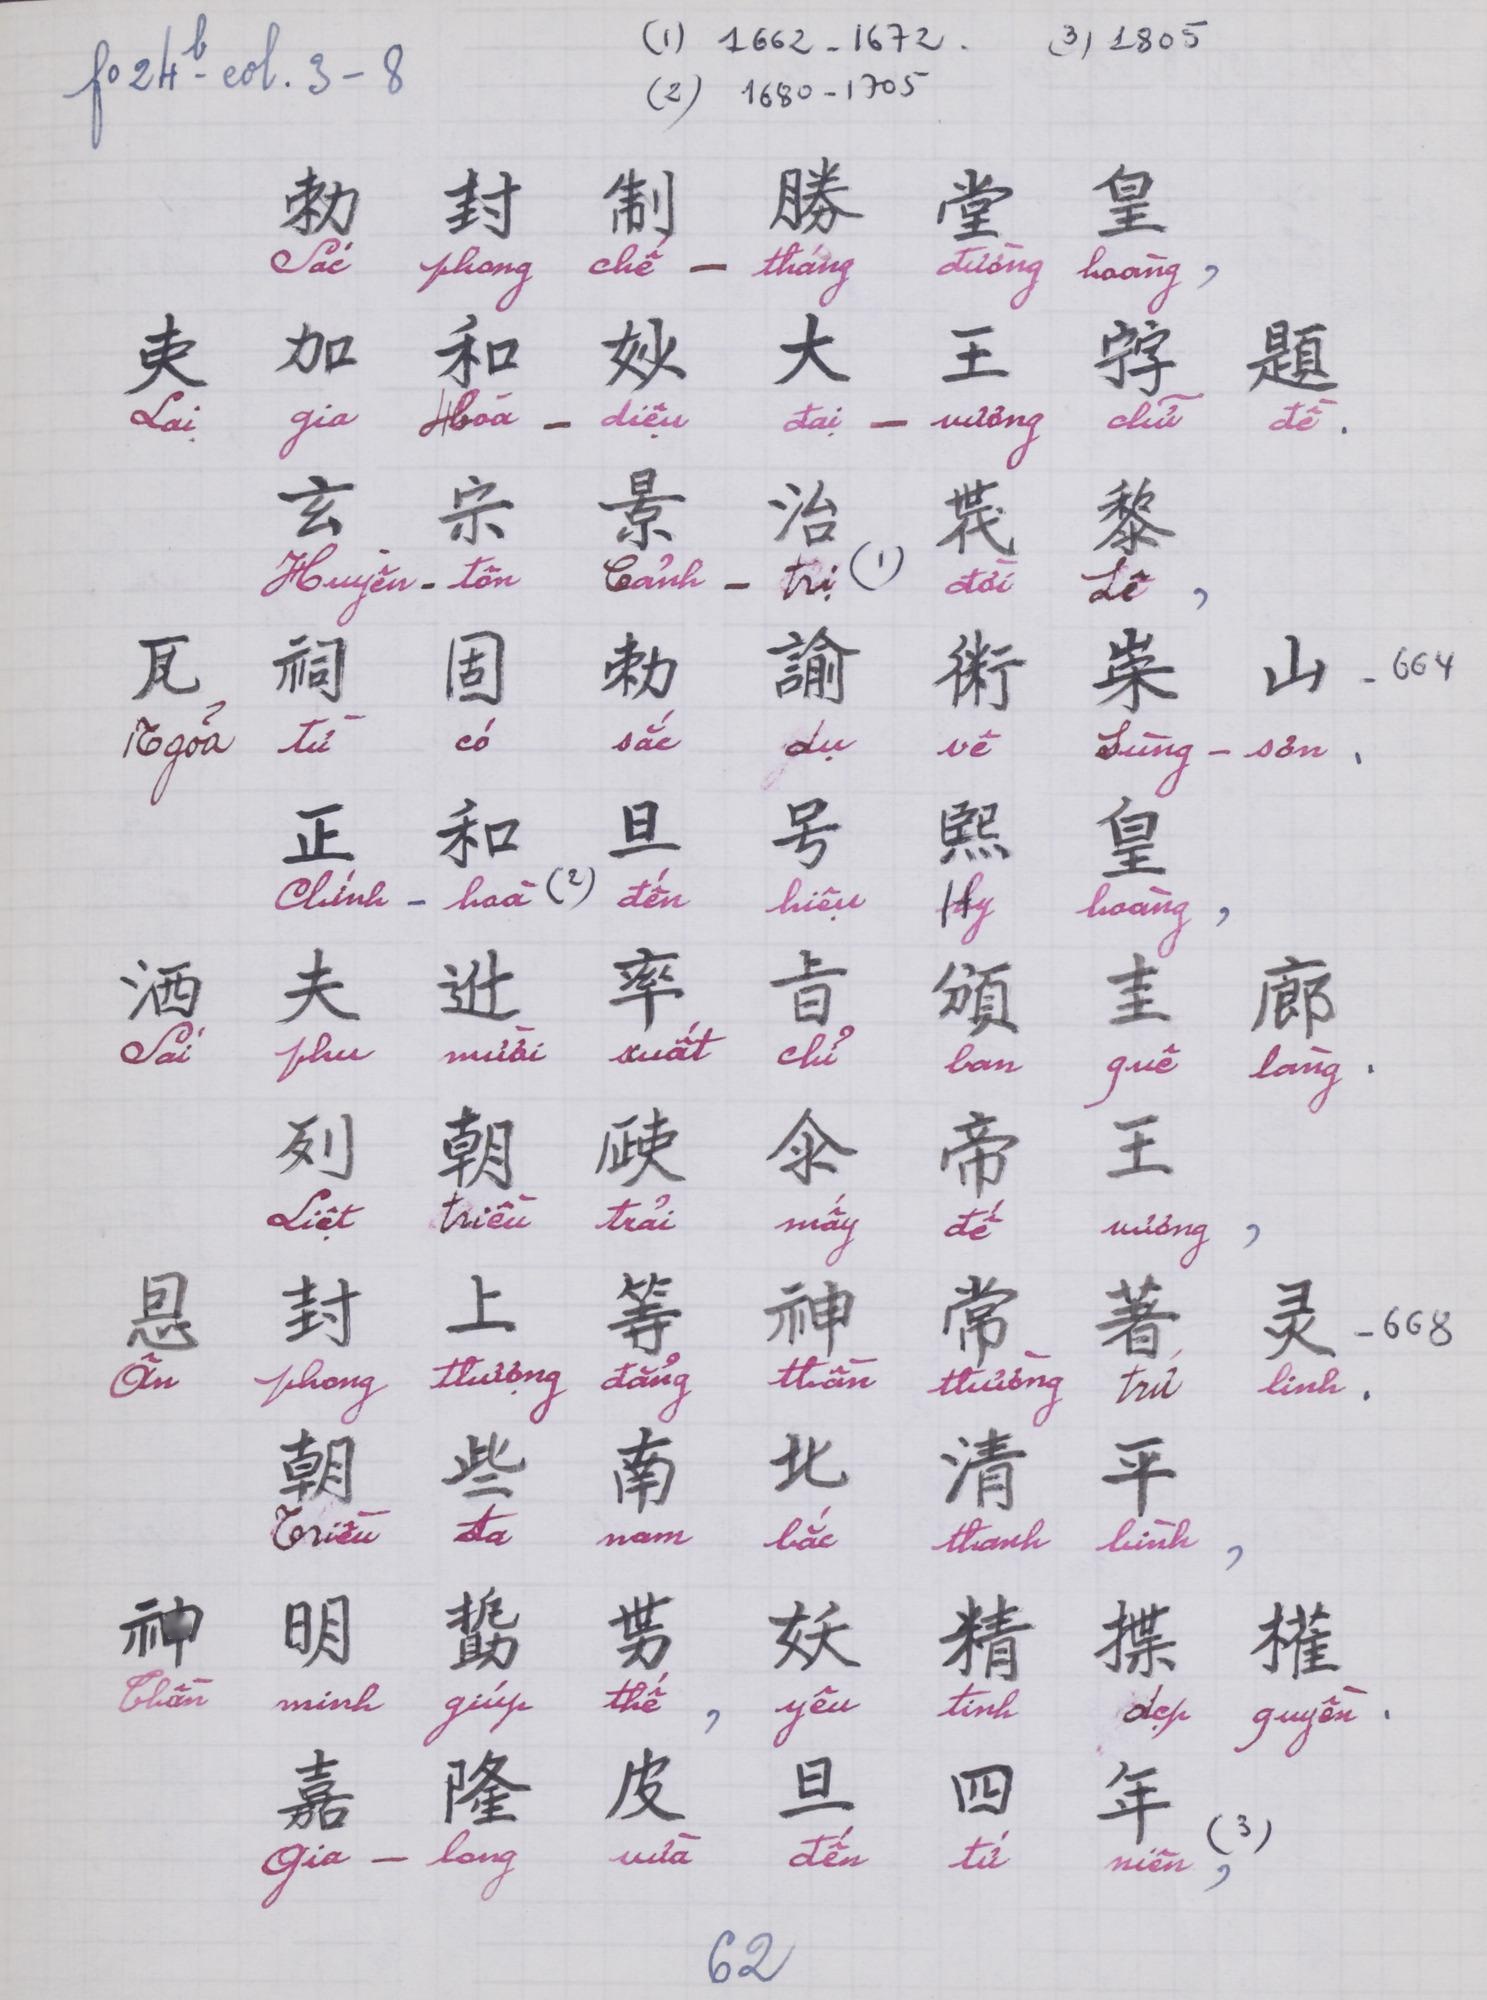 fo 24b - col. 3 - 8
(1) 1662 - 1672. (3) 1805
(2) 1680 - 1705
勅 封 制 勝 堂 皇
Sắc phong chế - thắng đường hoàng,
吏 加 和 妙 大 王 㝊 題
Lại gia Hoà - diệu đại - vương chữ đề.
玄 宗 景 治 茂 黎
Huyền - tôn Cảnh - trị (1) đời Lê,
瓦 祠 固 勅 諭 術 崇 山 - 664
Ngoã từ có sắc dụ về Sùng - sơn.
正 和 旦 号 熙 皇
Chính - hoà (2) đến hiệu Hy hoàng,
洒 夫 辻 率 旨 頒 圭 廊
Sái phu mười xuất chỉ ban quê làng.
列 朝 𣦰 氽 帝 王
Liệt triều trải mấy đế vương,
恩 封 上 等 神 常 著 灵 - 668
Ân phong thượng đẳng thần thường trứ linh.
朝 些 南 北 清 平
Triều ta nam bắc thanh bình,
神 明 𠢞 势 妖 精 揲 權
Thần minh giúp thế, yêu tinh dẹp quyền.
嘉 隆 皮 旦 四 年
Gia - long vừa đến tứ niên, (3)
62